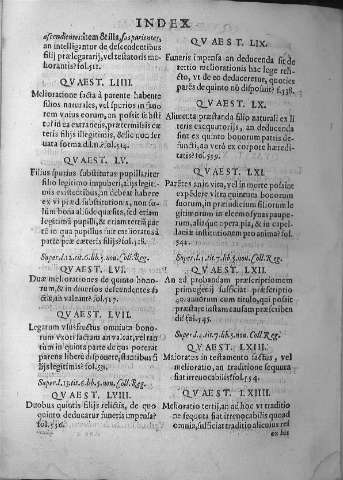 INDEX
ascendientes: item & illa, sus parientes,
an intelligantur de descendentibus
filij prælegatarij, vel testatoris me
liorantis? fol. 512.
QVÆST. LIIII.
Melioratione facta à parente habente
filios naturales, vel spurios in fauo
rem vnius eorum, an possit is historia
ea extraneis, prætermissis cæ
teris filijs illegitimis, & sic non ser
uata forma d. l. 11? fol. 514.
QVÆST. LV.
Filius spurius substitutus pupillariter
filio legitimo impuberi, alijs legiti
mis existentibus, an debeat habere
ex vi præd. substitutionis, non so-
lum bona alio de quæsita, sed etiam
legitimã pupilli, & etiam tertiũ par
tẽ in qua pupillus fuit melioratus à
patre præ cæteris filijs? fol. 518.
Super d. l. 2. tit. 6. lib. 5. nou. Coll. Reg.
QVÆST. LVI.
Duæ meliorationes de quinto bono-
rum, & in diuersos descendentes fa
ctæ, an valeant? fol. 527.
QVÆST. LVII.
Legatum vsusfructus omnium bono-
rum vxori factum an valeat, vel tan
tum in quinta parte de qua poterat
parens liberè disponere, stantibus fi
lijs legitimis? fol. 530.
Super d. l. 13. tit. 6. lib. 5. nou. Coll. Reg.
QVÆST. LVIII.
Duobus quintis filijs relictis, de quo
quinto deducatur funeris impensa?
fol. 536.
QVÆST. LIX.
Funeris impensa an deducenda sit de
tertio meliorationis hac lege reli-
cto, vt de eo deduceretur, quoties
parẽs de quinto nõ disposuit? f. 538.
QVÆST. LX.
Alimenta præstanda filio naturali ex li
teris executorijs, an deducenda
sint ex quinto bonorum patris de-
functi, an verò ex corpore hæredi-
tatis? fol. 539.
QVÆST. LXI.
Parẽtes an in vita, vel in morte possint
expẽdere vltra quintum bonorum
suorum, in præiudicium filiorum le
gitimorum in eleemosynas paupe-
rum, aliaque opera pia, & in capel-
laniæ institutionem pro anima? fol.
541.
Super d. l. 1. tit. 7. lib. 5. nou. Coll. Reg.
QVÆST. LXII.
An ad probandam præscriptionem
primogenij sufficiat præscriptio
40. annorum cum titulo, qui possit
præstare iustam causam præscriben
di? fol. 545.
Super d. l. 4. tit. 7. lib. 5. nou. Coll. Reg.
QVÆST. LXIII.
Maioratus in testamento factus, vel
melioratio, an traditione sequuta
fiat irreuocabilis? fol. 554.
QVÆST. LXIIII.
Melioratio tertij, an ad hoc vt traditio
ne sequuta fiat irreuocabilis quoad
omnia, sufficiat traditio alicuius rei
ex his